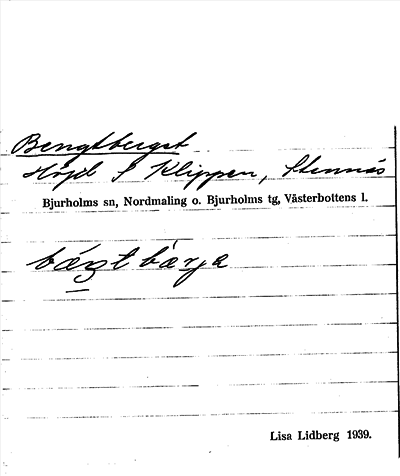 Bengtberget
Höjd S Klippen, Stennäs
Bjurholms sn, Nordmaling o. Bjurholms tg, Västerbottens l.
Lisa Lidberg 1939.